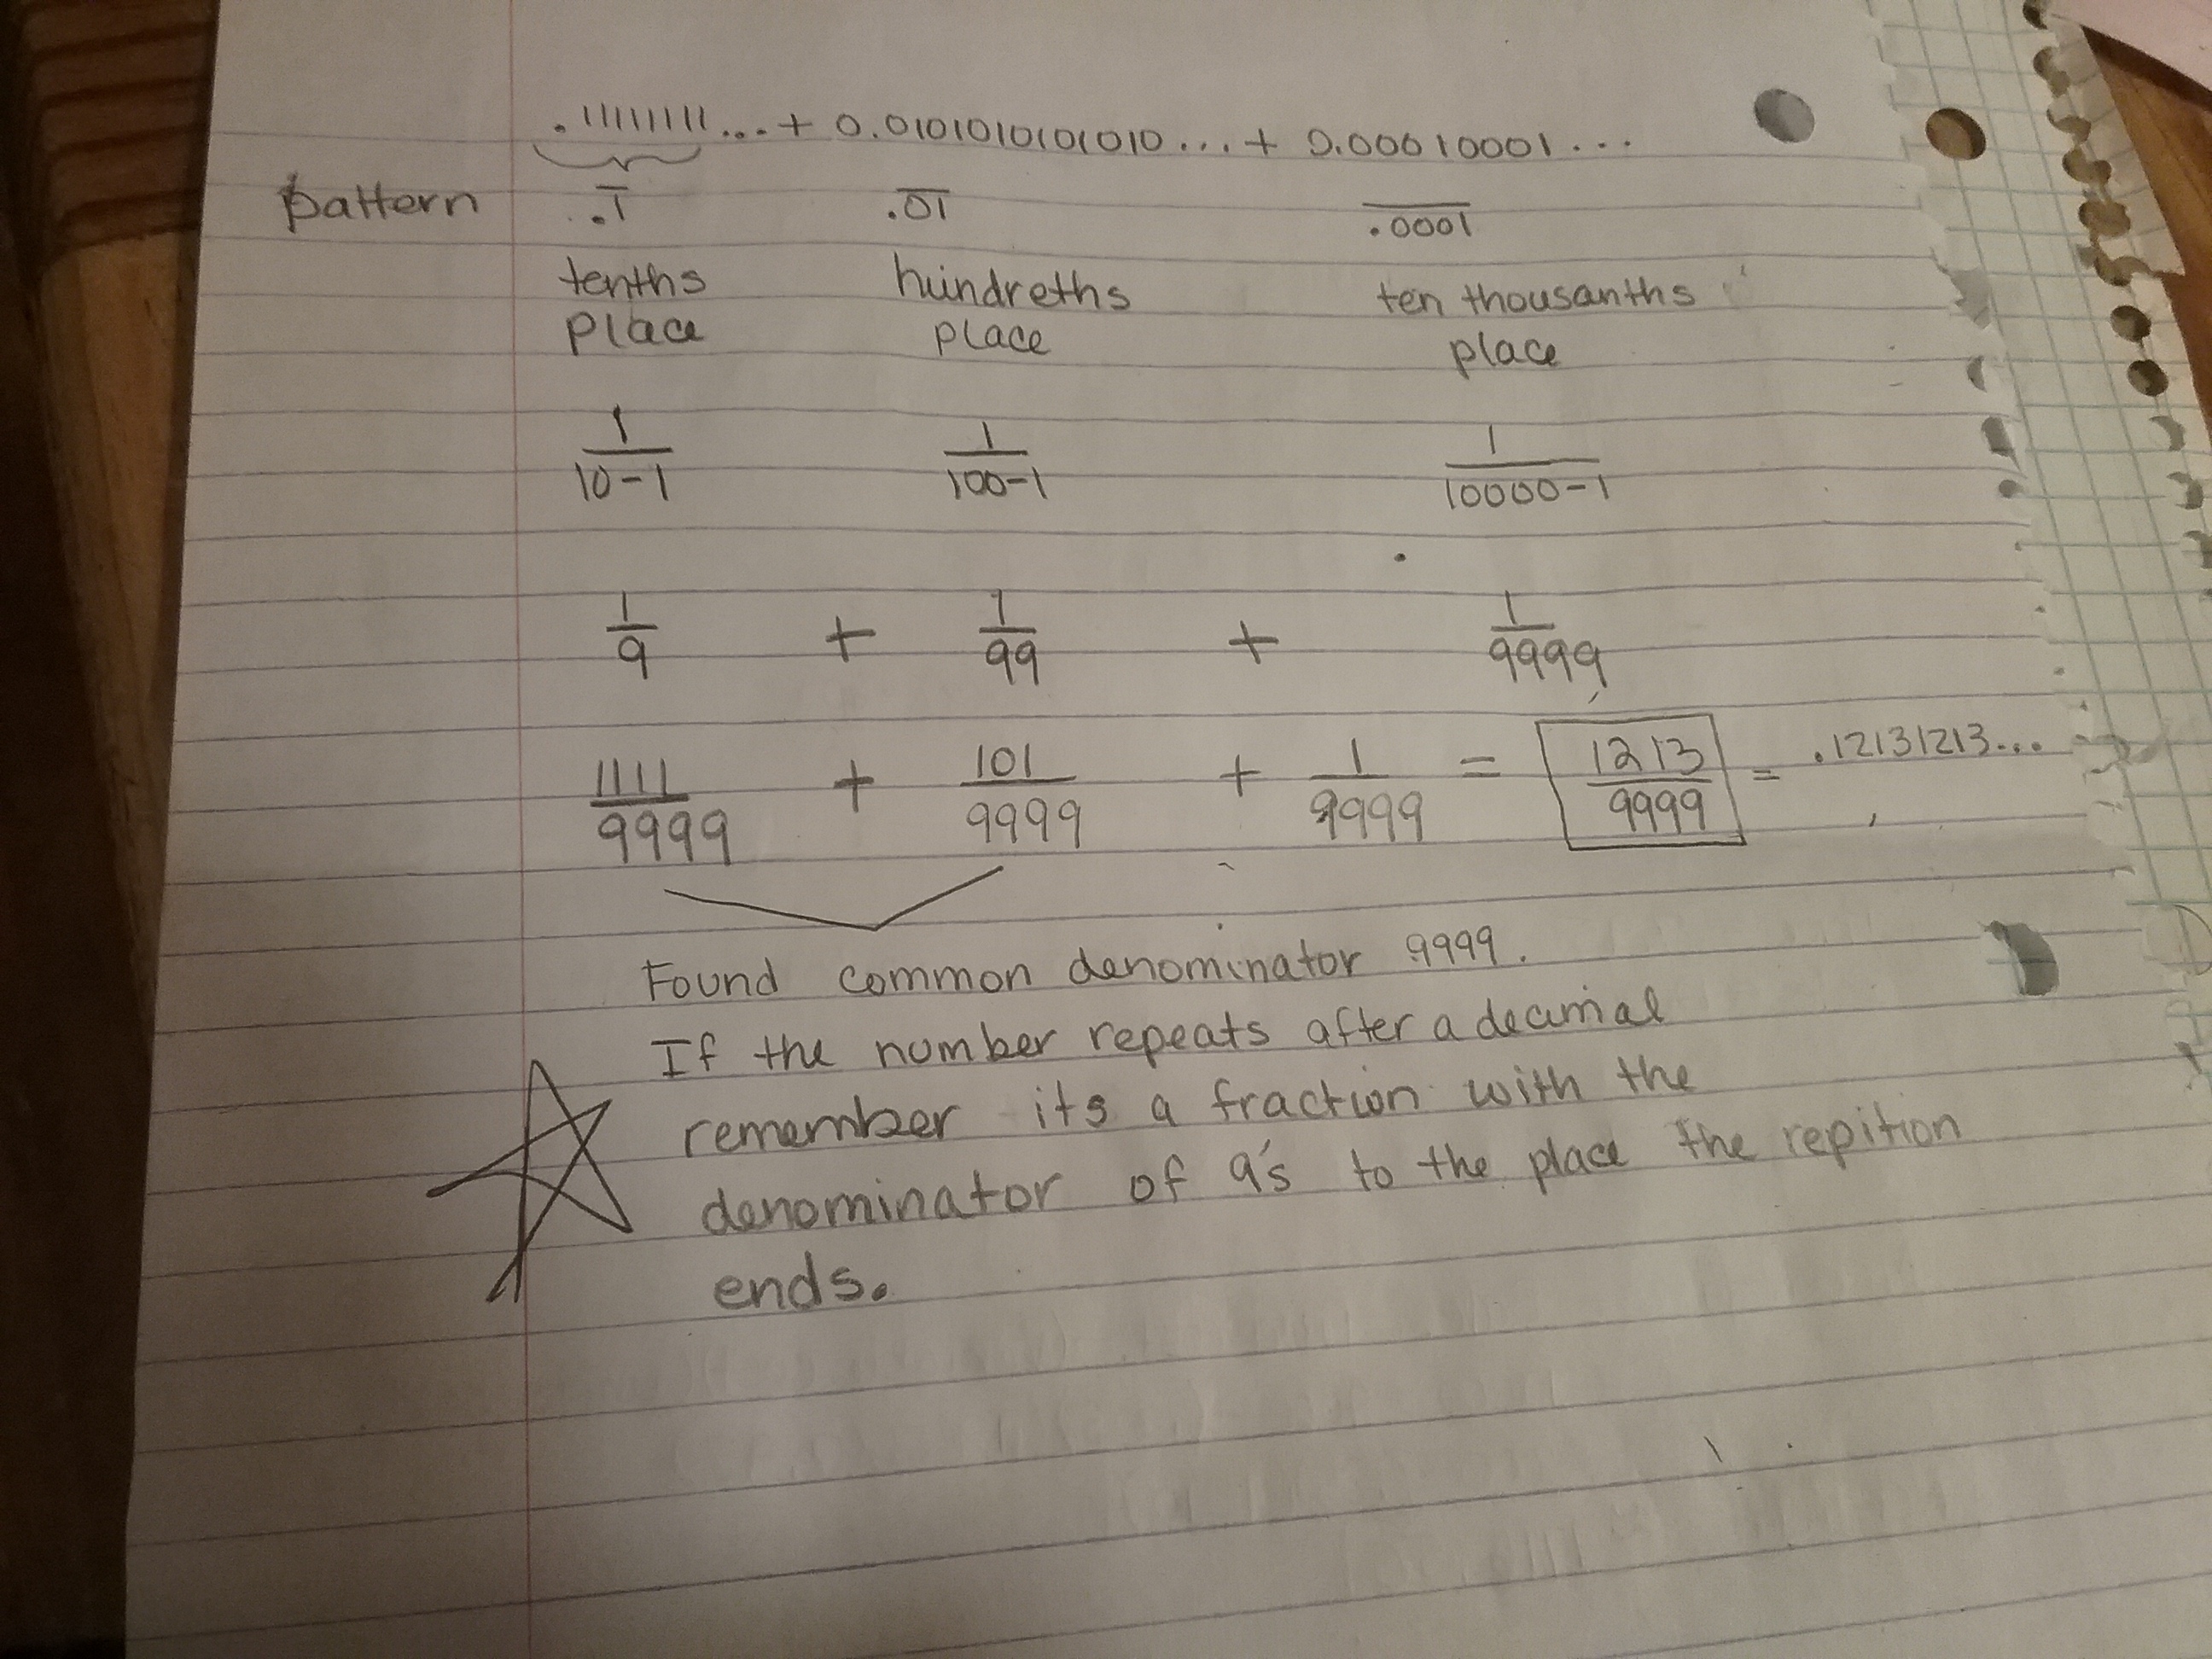 .111111111... + 0.0101010101010... + 0.00010001...
pattern .1̅ .0̅1̅ .0̅0̅0̅1̅
tenths hundreths ten thousanths
place place place
1/(10-1) 1/(100-1) 1/(10000-1)
1/9 + 1/99 + 1/9999
1111/9999 + 101/9999 + 1/9999 = 1213/9999 = .12131213...
Found common denominator 9999.
If the number repeats after a decimal
remember its a fraction with the
denominator of 9's to the place the repition
ends.